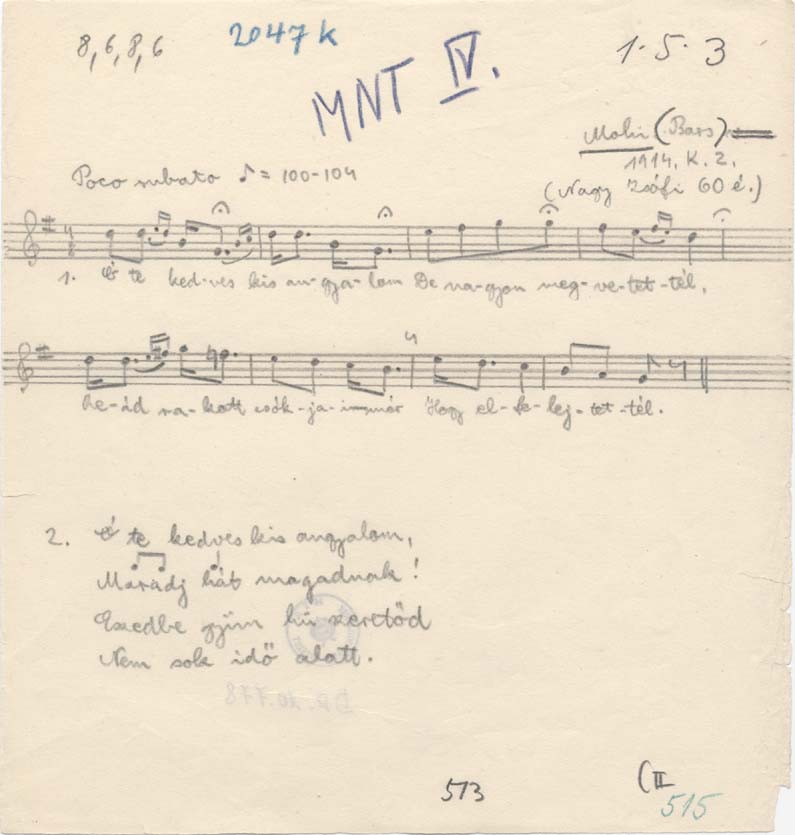 8,6,8,6
2047 k
1·5·3
MNT IV.
Mohi (Bars)
1914. K. Z.
Poco rubato ♪ = 100-104
(Nagy Zsófi 60 é.)
1. Ó te ked-ves kis an-gya-lom De na-gyon meg-ve-tet-tél,
Re-ád ra-kott csók-ja-im-már Hogy el-fe-lej-tet-tél.
2. Ó te kedves kis angyalom,
Maradj hát magadnak!
Eszedbe gyün hű szeretőd
Nem sok idő alatt.
513
(II
515